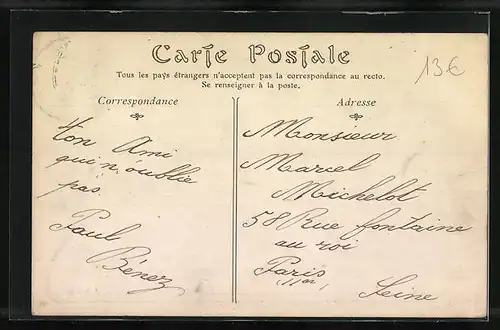 Carte Postale
13€
Tous les pays étrangers n'acceptent pas la correspondance au recto.
Se renseigner à la poste.
Correspondance
Adresse
ton Ami
qui n'oublie
pas
Paul
Bénez
Monsieur
Marcel
Michelot
58 Rue fontaine
au roi
Paris 11er
Seine